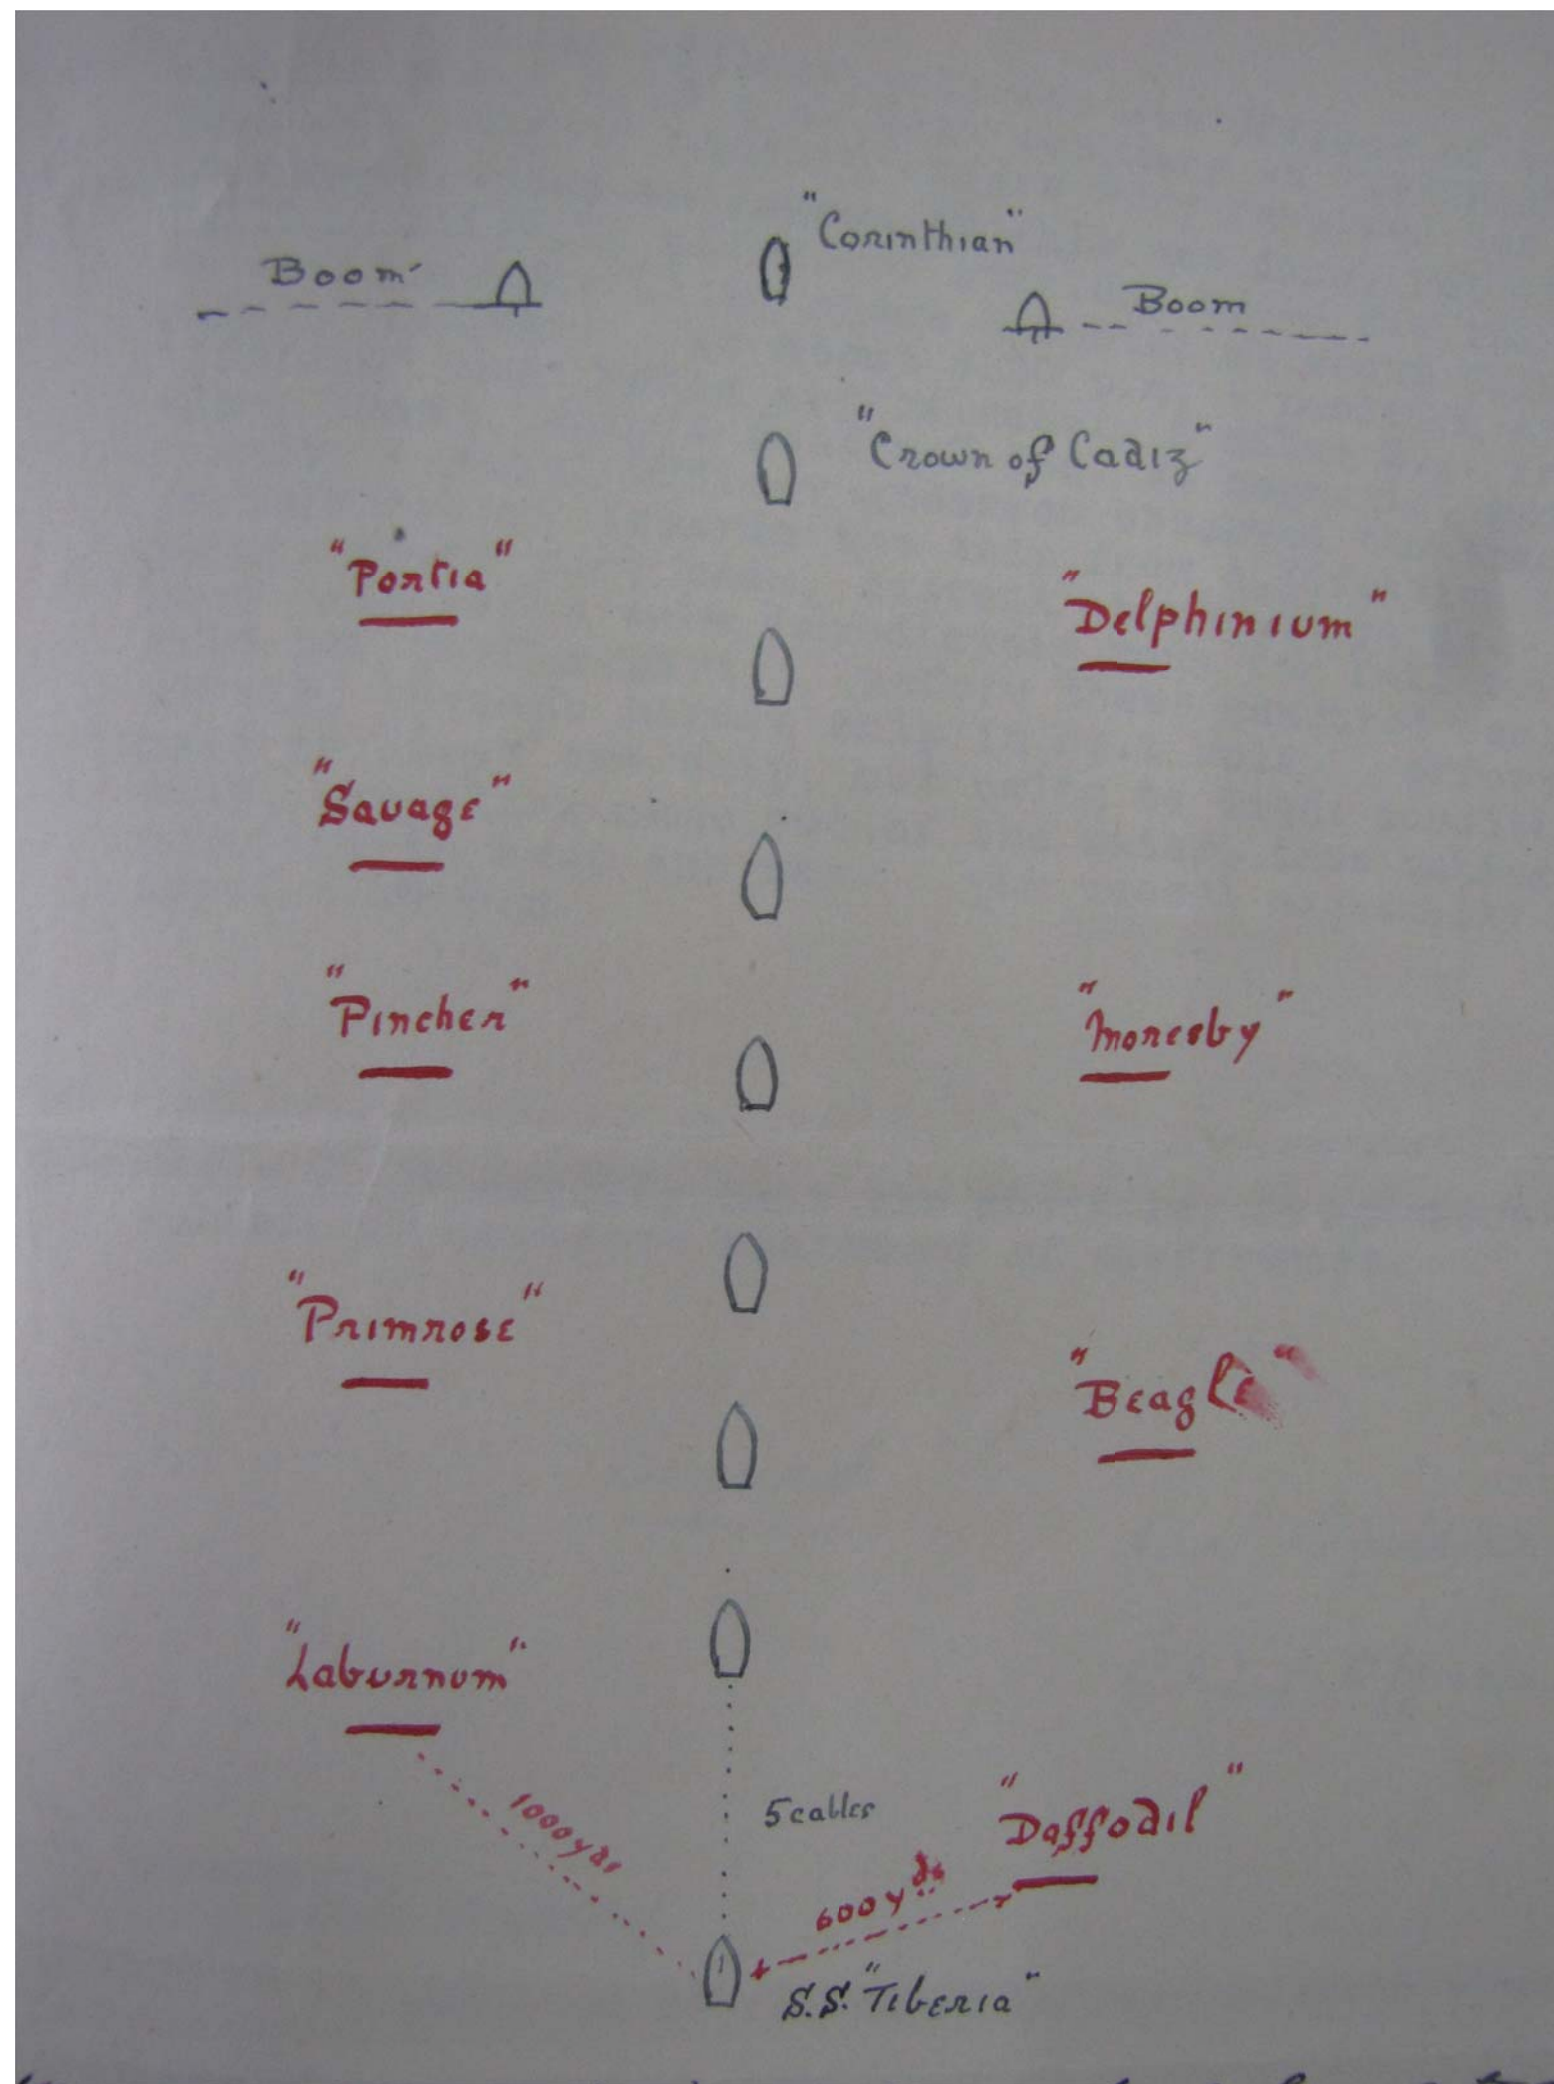 "Corinthian"
Boom
Boom
"Crown of Cadiz"
"Portia"
"Delphinium"
"Savage"
"Pincher"
"Moresby"
"Primrose"
"Beagle"
"Laburnum"
1000 yds
5 cables
"Daffodil"
600 yds
S.S. "Tiberia"